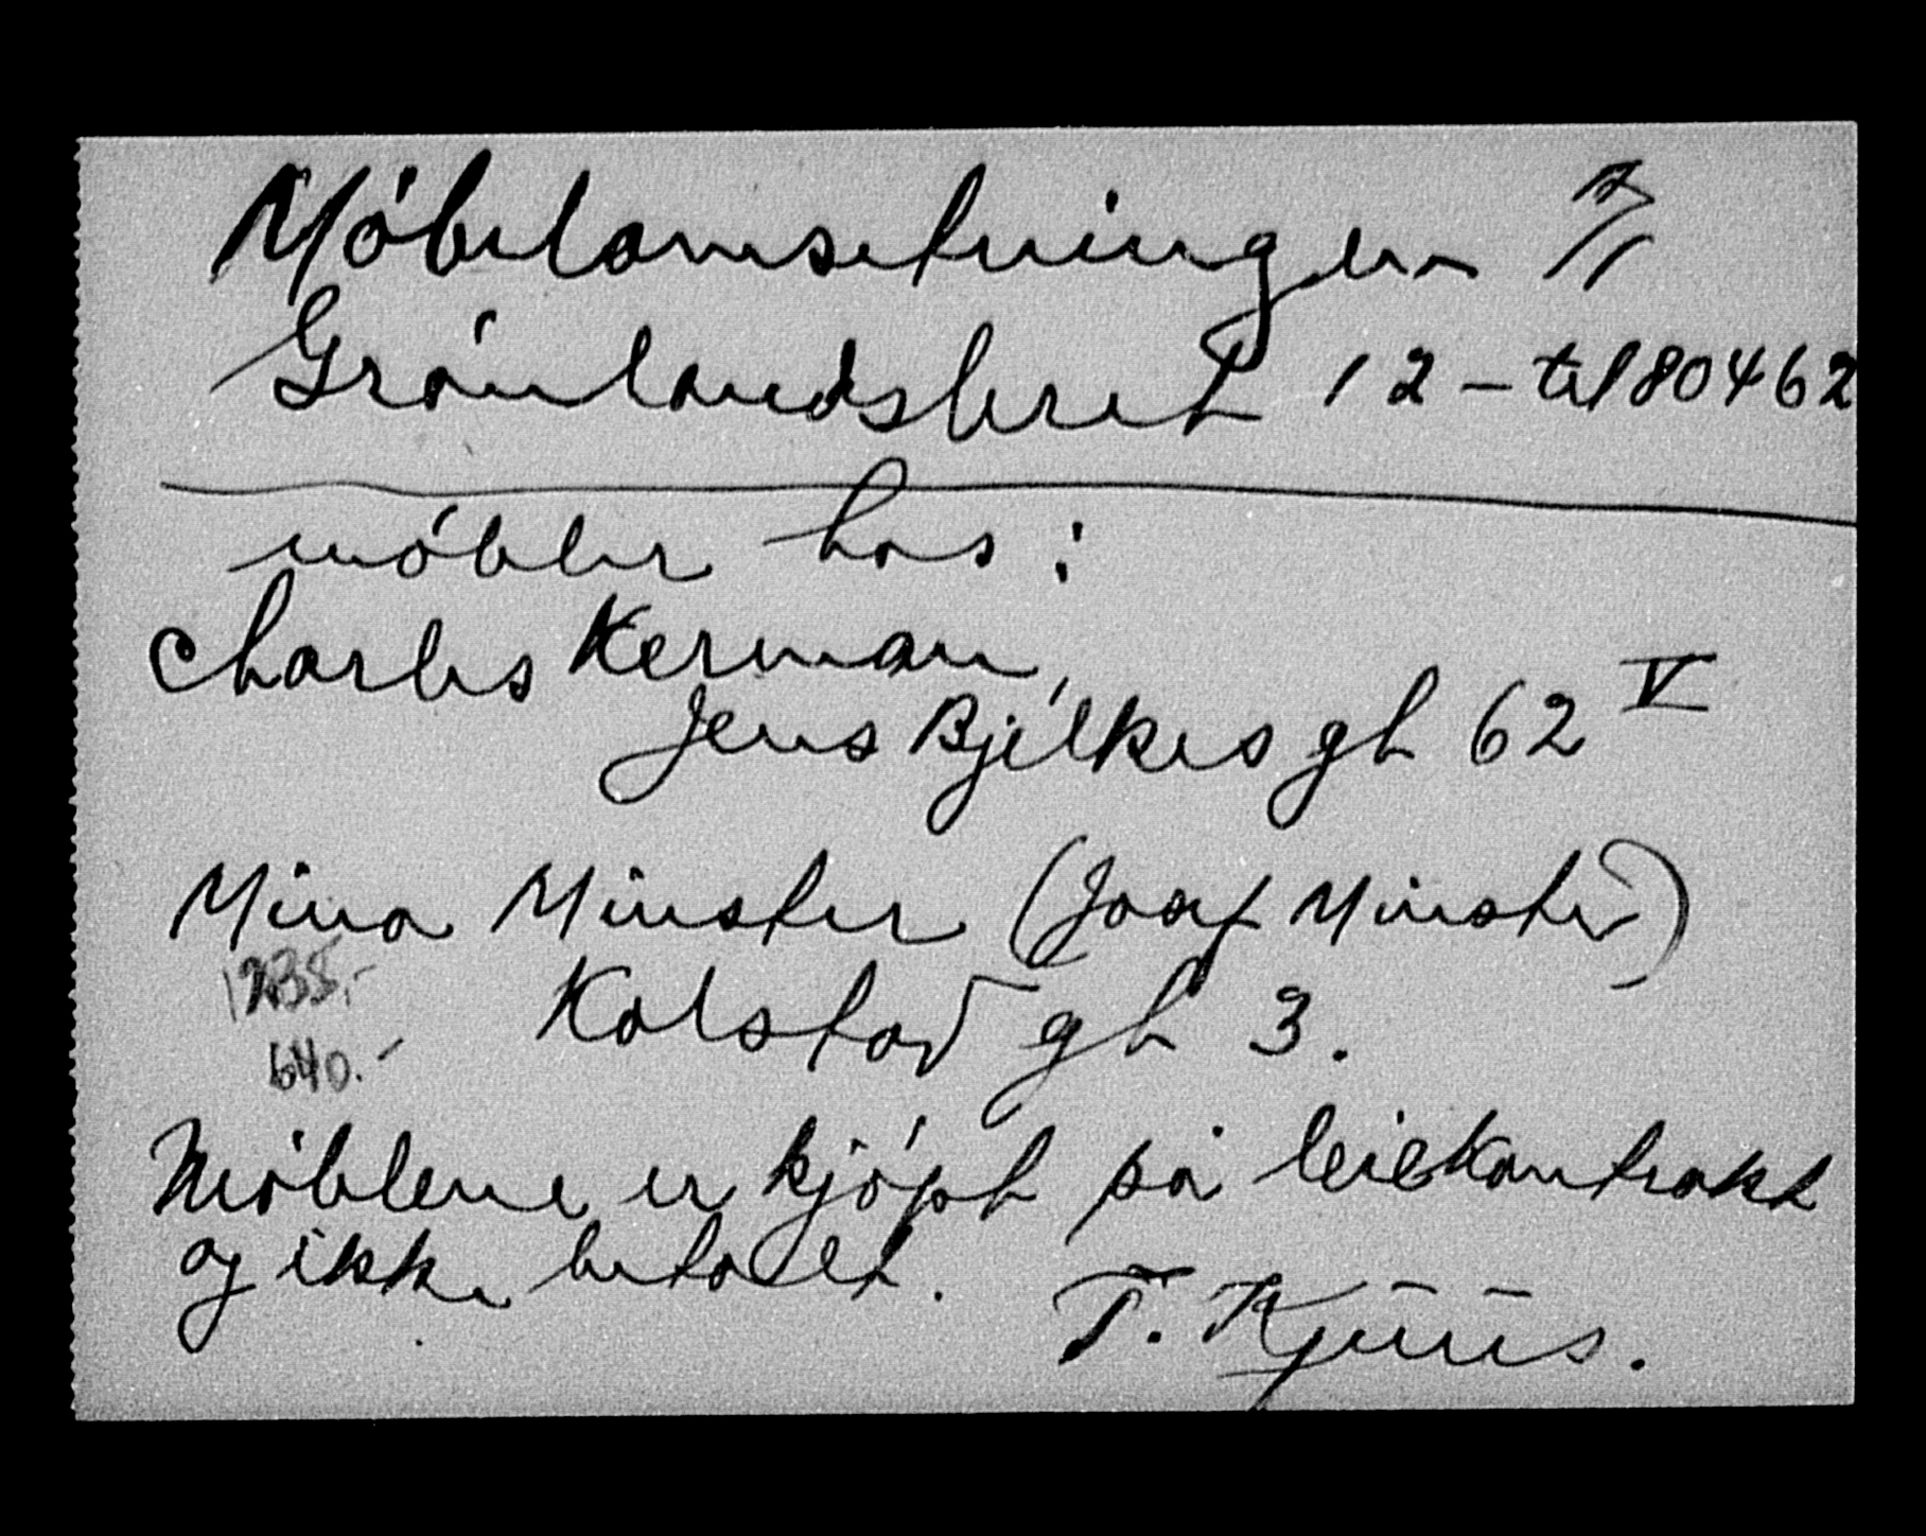 Möbelomsetningen A/S
Grönlandsleret 12 - tel 80462
möbler hos:
Charles Kerman,
Jens Bjelkes gt 62 V
Mina Minster (Josef Minster)
1235.-
Kolstad gt 3.
640.-
Möblene er kjöpt på leiekontrakt
og ikke betalt.
T. Kjuus.